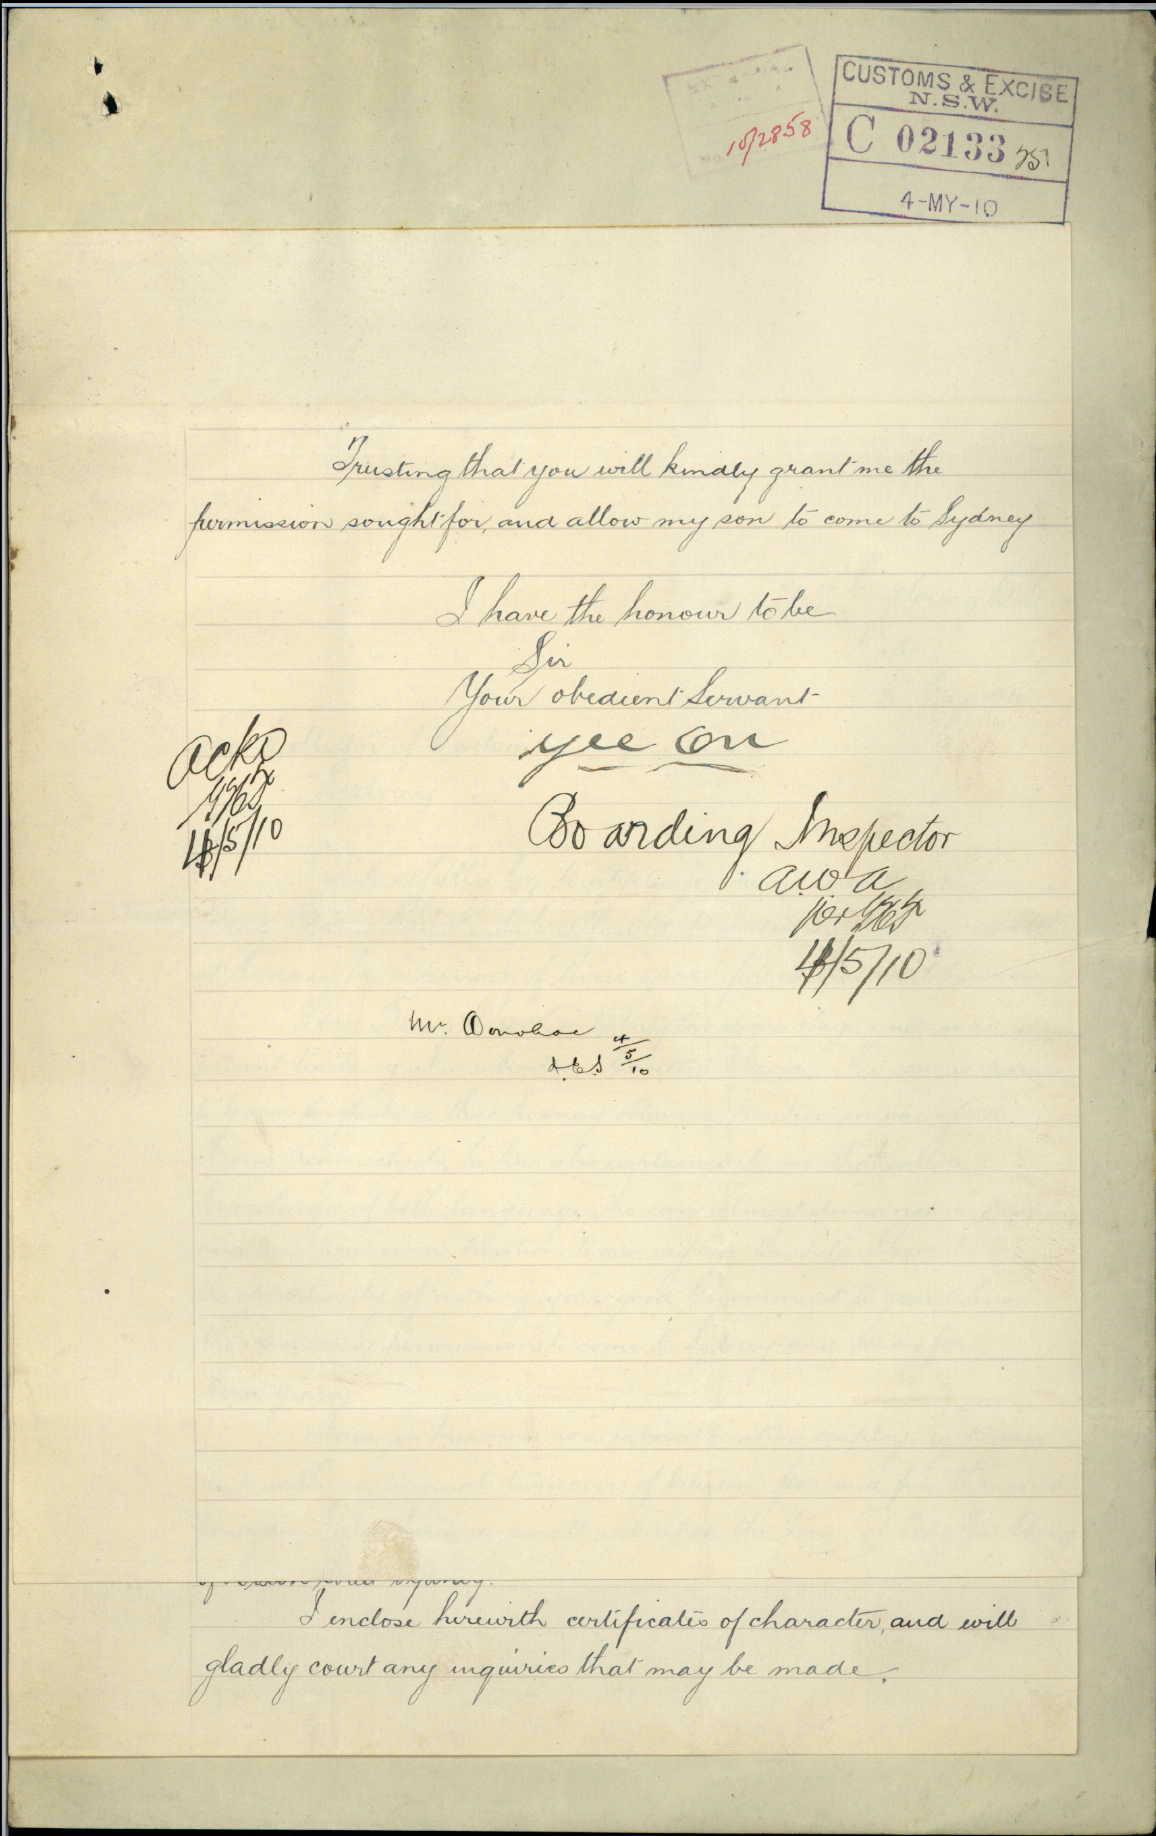 10/2858
CUSTOMS & EXCISE
N.S.W.
C 02133
4-MY-10
Trusting that you will kindly grant me the
permission sought for, and allow my son to come to Sydney
I have the honour to be
Sir
Your obedient Servant
Yee On
Ackd
4/5/10
Boarding Inspector
a.w.a
per
4/5/10
Mr. Donohoe
4/5/10
I enclose herewith certificates of character, and will
gladly court any inquiries that may be made.